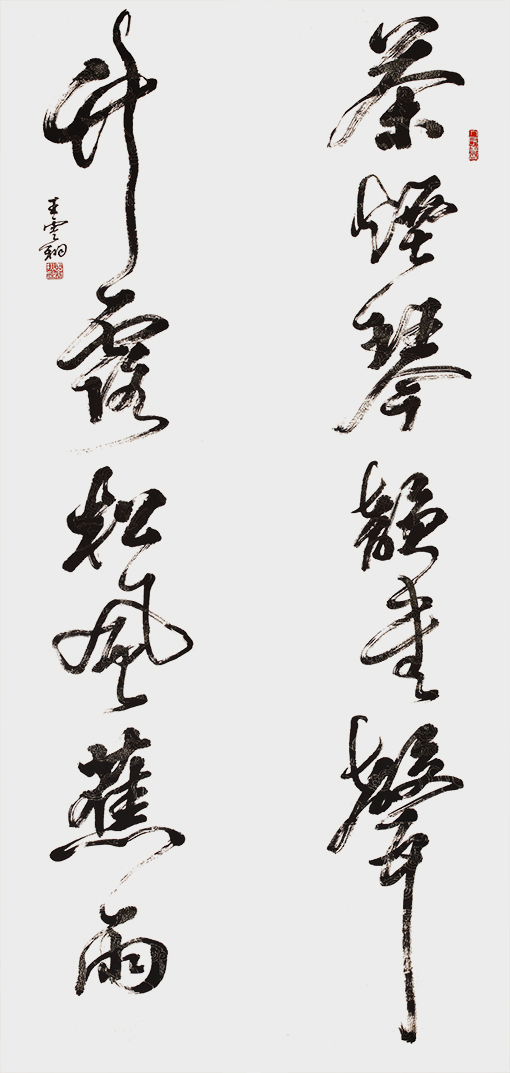 茶煙琴韻書聲
竹露松風蕉雨
王雲翔